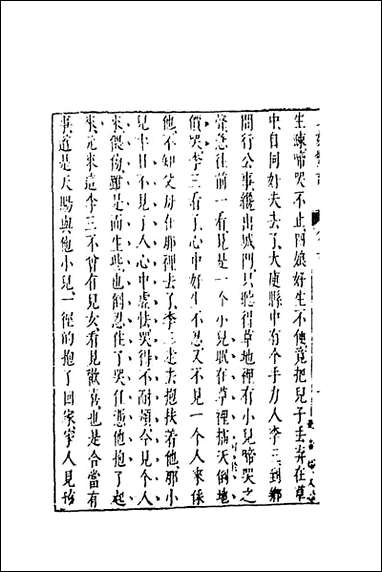 生疎啼哭不止四娘好生不便竟把兒子丟弃在草
中自同奸夫去了大庾縣中有个手力人李三到鄉
間行公事纔出城門只聽得草地裡有小兒啼哭之
聲急往前一看見是一个小兒眠在草裡擂天倒地
價哭李三看了心中好生不忍又不見一个人來倸
他不知父母在那裡去了李三走去抱扶着他那小
兒半日不見了人心中虛怯哭得不耐煩今見个人
來偎傍雖是面生些也倒忍住了哭任憑他抱了起
來元來這李三不曾有兒女看見歡喜也是合當有
事道是天賜與他小兒一徑的抱了回家家人見孩